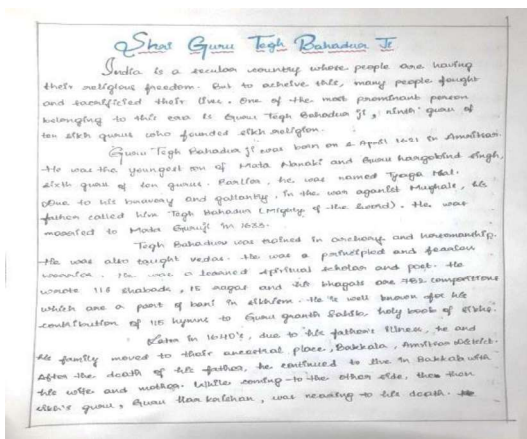 Shri Guru Tegh Bahadur Ji
India is a secular country whose people are having
their religious freedom. But to acheive this, many people fought
and sacrificied their lives. One of the most prominant person
belonging to this era is Guru Tegh Bahadur Ji, ninth guru of
ten sikh gurus who founded sikh religion.
Guru Tegh Bahadur Ji was born on 1 April 1621 in Amritsar.
He was the youngest son of Mata Nanaki and Guru hargobind singh,
sixth guru of ten gurus. Earlier, he was named Tyaga Mal.
Due to his bravery and gallantry, in the war aganist Mughals, his
father called him Tegh Bahadur (Mighty of the sword). He was
married to Mata Guruji in 1633.
Tegh Bahadur was trained in archery and horsemanship.
He was also taught vedas. He was a principled and fearless
warrior. He was a learned spiritual scholar and poet. He
wrote 116 shabads, 15 ragas and his bhagats are 782 compositions
which are a part of bani in sikhism. He is well known for his
contribution of 115 hymns to Guru granth Sahib holy book of sikhs.
Later in 1640's, due to his father's illness, he and
his family moved to their ancestral place, Bakkala, Amritsar district.
After the death of his father, he continued to live in Bakkala with
his wife and mother. While coming to the other side, the then
sikh's guru, Guru Har krishan, was nearing to his death.